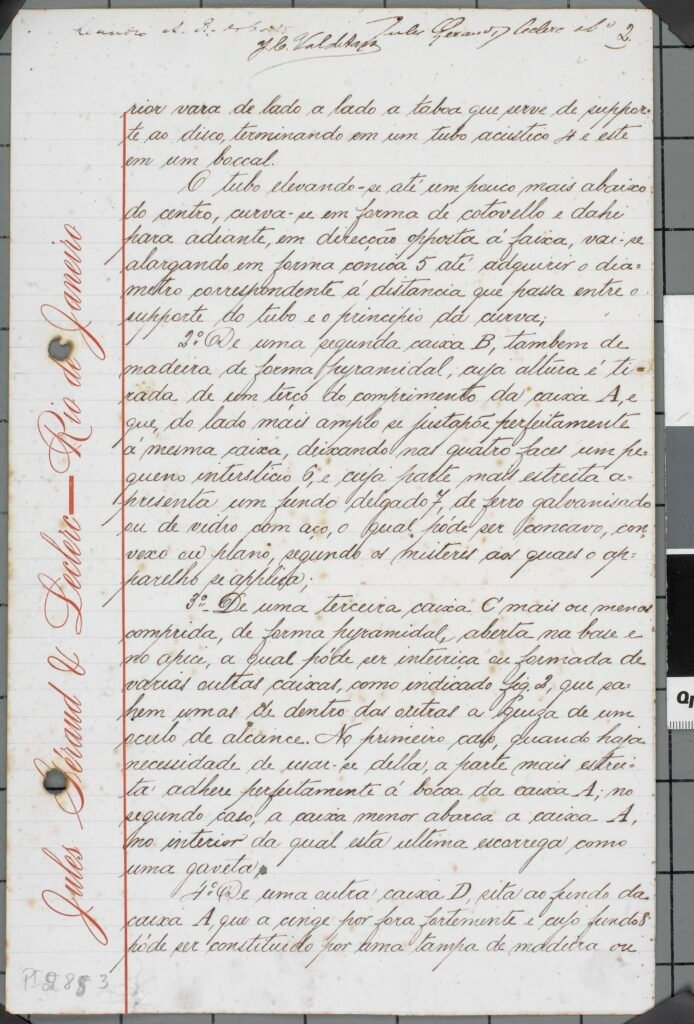 Jules Geraud, Leclerc & Cº 2
rior vara de lado a lado a taboa que serve de suppor-
te ao disco, terminando em um tubo acustico 4 e este
em um boccal.
O tubo elevando-se até um pouco mais abaixo
do centro, curva-se em forma de cotovello e dahi
para adiante, em direcção opposta á faixa, vai-se
alargando em forma conica 5 até adquirir o dia=
metro correspondente á distancia que passa entre o
supporte do tubo e o principio da curva;
2º De uma segunda caixa B, tambem de
madeira de forma pyramidal, cuja altura é ti=
rada de um terço do comprimento da caixa A, e
que, do lado mais amplo se justapõe perfeitamente
á mesma caixa, deixando nas quatro faces um pe-
queno intersticio 6, e cuja parte mais estreita a-
presenta um fundo delgado 7, de ferro galvanisado
ou de vidro com aço, o qual póde ser concavo, con-
vexo ou plano, segundo os misteris aos quaes o ap-
parelho se applica;
3º De uma terceira caixa C mais ou menos
comprida, de forma pyramidal, aberta na base e
no apice, a qual póde ser inteirica ou formada de
varias outras caixas, como indicado fig. 2, que sa-
hem umas de dentro das outras a guiza de um
oculo de alcance. No primeiro caso, quando haja
necessidade de usar-se della, a parte mais estrei-
ta adhere perfeitamente á bocca da caixa A; no
segundo caso, a caixa menor abarca a caixa A,
no interior da qual esta ultima escorrega como
uma gaveta;
4º De uma outra caixa D, sita ao fundo da
caixa A, que a cinge por fora fortemente e cujo fundo 8
póde ser constituido por uma tampa de madeira ou
Jules Géraud & Leclerc — Rio de Janeiro
PI 2883